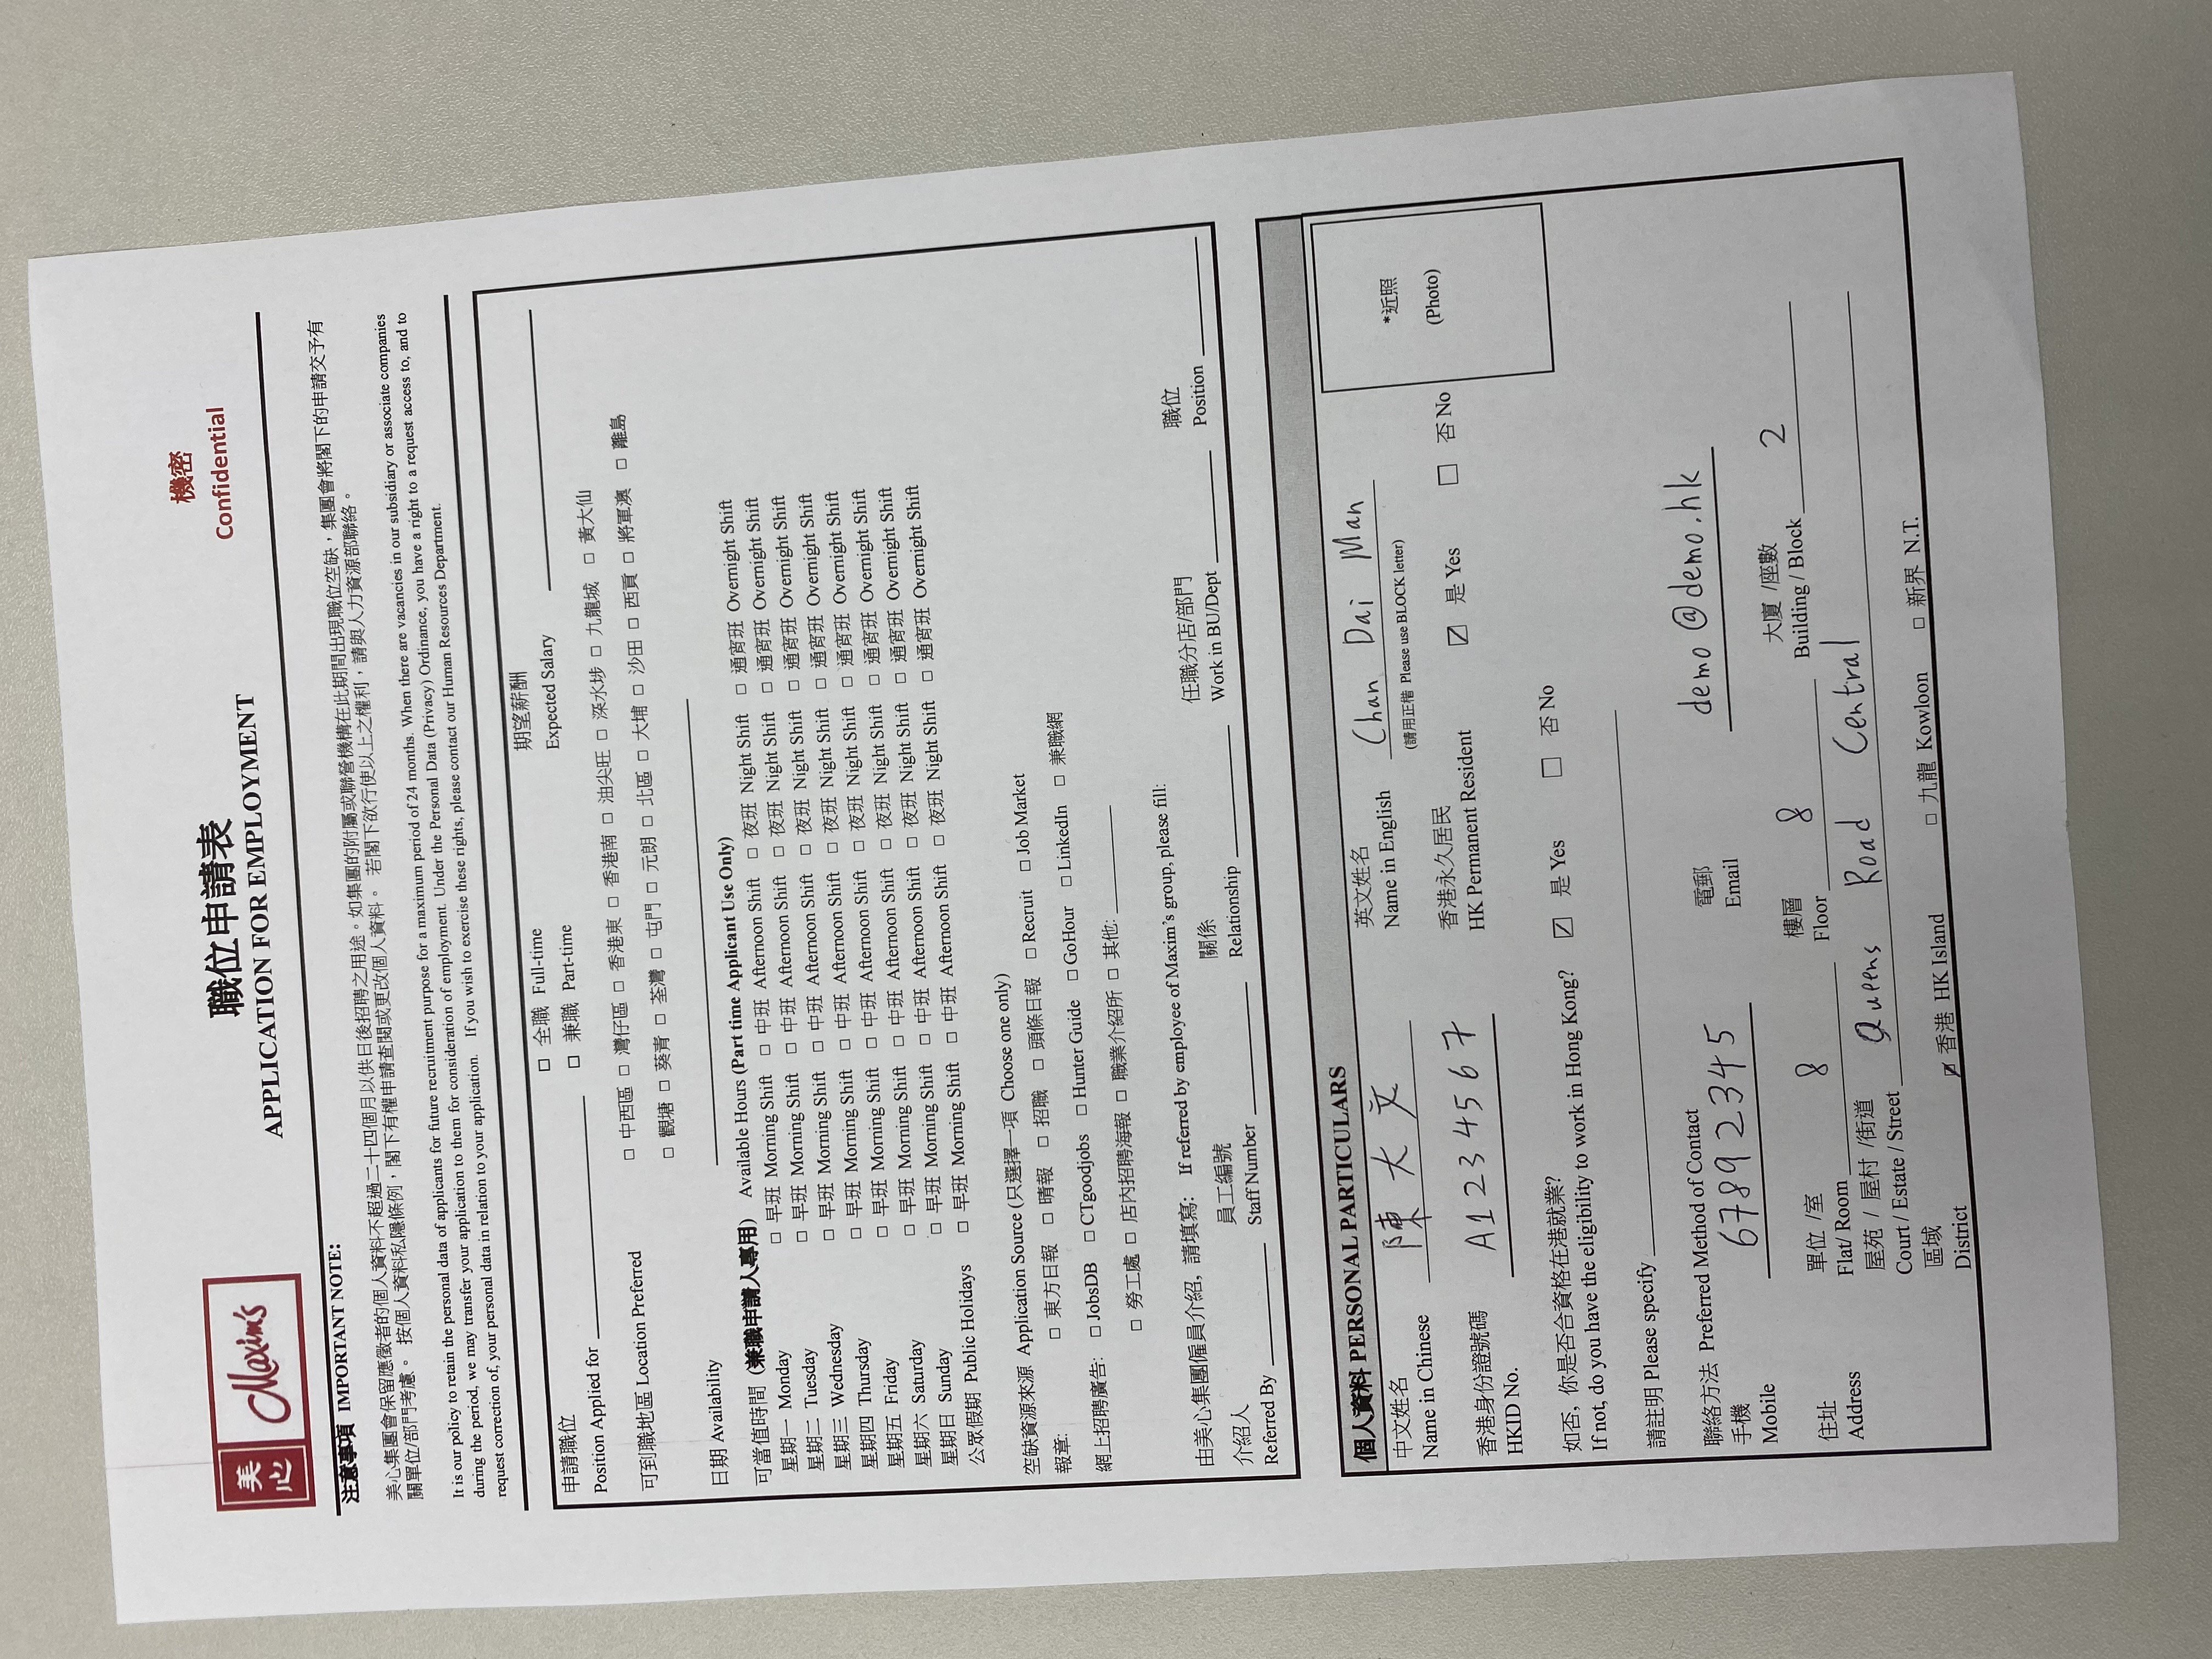 美心 Maxim's
職位申請表
APPLICATION FOR EMPLOYMENT
機密
Confidential
注意事項 IMPORTANT NOTE:
美心集團會保留應徵者的個人資料不超過二十四個月以供日後招聘之用途。如集團的附屬或聯營機構在此期間出現職位空缺，集團會將閣下的申請交予有
關單位/部門考慮。 按個人資料私隱條例，閣下有權申請查閱或更改個人資料。 若閣下欲行使以上之權利，請與人力資源部聯絡。
It is our policy to retain the personal data of applicants for future recruitment purpose for a maximum period of 24 months. When there are vacancies in our subsidiary or associate companies
during the period, we may transfer your application to them for consideration of employment. Under the Personal Data (Privacy) Ordinance, you have a right to a request access to, and to
request correction of, your personal data in relation to your application. If you wish to exercise these rights, please contact our Human Resources Department.
申請職位 □ 全職 Full-time 期望薪酬
Position Applied for □ 兼職 Part-time Expected Salary
可到職地區 Location Preferred □ 中西區 □ 灣仔區 □ 香港東 □ 香港南 □ 油尖旺 □ 深水埗 □ 九龍城 □ 黃大仙
□ 觀塘 □ 葵青 □ 荃灣 □ 屯門 □ 元朗 □ 北區 □ 大埔 □ 沙田 □ 西貢 □ 將軍澳 □ 離島
日期 Availability
可當值時間 (兼職申請人專用) Available Hours (Part time Applicant Use Only)
星期一 Monday □ 早班 Morning Shift □ 中班 Afternoon Shift □ 夜班 Night Shift □ 通宵班 Overnight Shift
星期二 Tuesday □ 早班 Morning Shift □ 中班 Afternoon Shift □ 夜班 Night Shift □ 通宵班 Overnight Shift
星期三 Wednesday □ 早班 Morning Shift □ 中班 Afternoon Shift □ 夜班 Night Shift □ 通宵班 Overnight Shift
星期四 Thursday □ 早班 Morning Shift □ 中班 Afternoon Shift □ 夜班 Night Shift □ 通宵班 Overnight Shift
星期五 Friday □ 早班 Morning Shift □ 中班 Afternoon Shift □ 夜班 Night Shift □ 通宵班 Overnight Shift
星期六 Saturday □ 早班 Morning Shift □ 中班 Afternoon Shift □ 夜班 Night Shift □ 通宵班 Overnight Shift
星期日 Sunday □ 早班 Morning Shift □ 中班 Afternoon Shift □ 夜班 Night Shift □ 通宵班 Overnight Shift
公眾假期 Public Holidays □ 早班 Morning Shift □ 中班 Afternoon Shift □ 夜班 Night Shift □ 通宵班 Overnight Shift
空缺資源來源 Application Source (只選擇一項 Choose one only)
報章: □ 東方日報 □ 晴報 □ 招職 □ 頭條日報 □ Recruit □ Job Market
網上招聘廣告: □ JobsDB □ CTgoodjobs □ Hunter Guide □ GoHour □ LinkedIn □ 兼職網
□ 勞工處 □ 店內招聘海報 □ 職業介紹所 □ 其他:
由美心集團僱員介紹, 請填寫: If referred by employee of Maxim's group, please fill:
介紹人 員工編號 關係 任職分店/部門 職位
Referred By Staff Number Relationship Work in BU/Dept Position
個人資料 PERSONAL PARTICULARS
中文姓名 陳大文 英文姓名 Chan Dai Man
Name in Chinese Name in English
(請用正楷 Please use BLOCK letter)
*近照
(Photo)
香港身份證號碼 A1234567 香港永久居民
HKID No. HK Permanent Resident ☑ 是 Yes □ 否 No
如否, 你是否合資格在港就業?
If not, do you have the eligibility to work in Hong Kong? ☑ 是 Yes □ 否 No
請註明 Please specify
聯絡方法 Preferred Method of Contact
手機 67892345 電郵 demo@demo.hk
Mobile Email
住址 單位 /室 8 樓層 8 大廈 /座數 2
Address Flat/ Room Floor Building / Block
屋苑 / 屋村 /街道 Queens Road Central
Court / Estate / Street
區域
District ☑ 香港 HK Island □ 九龍 Kowloon □ 新界 N.T.